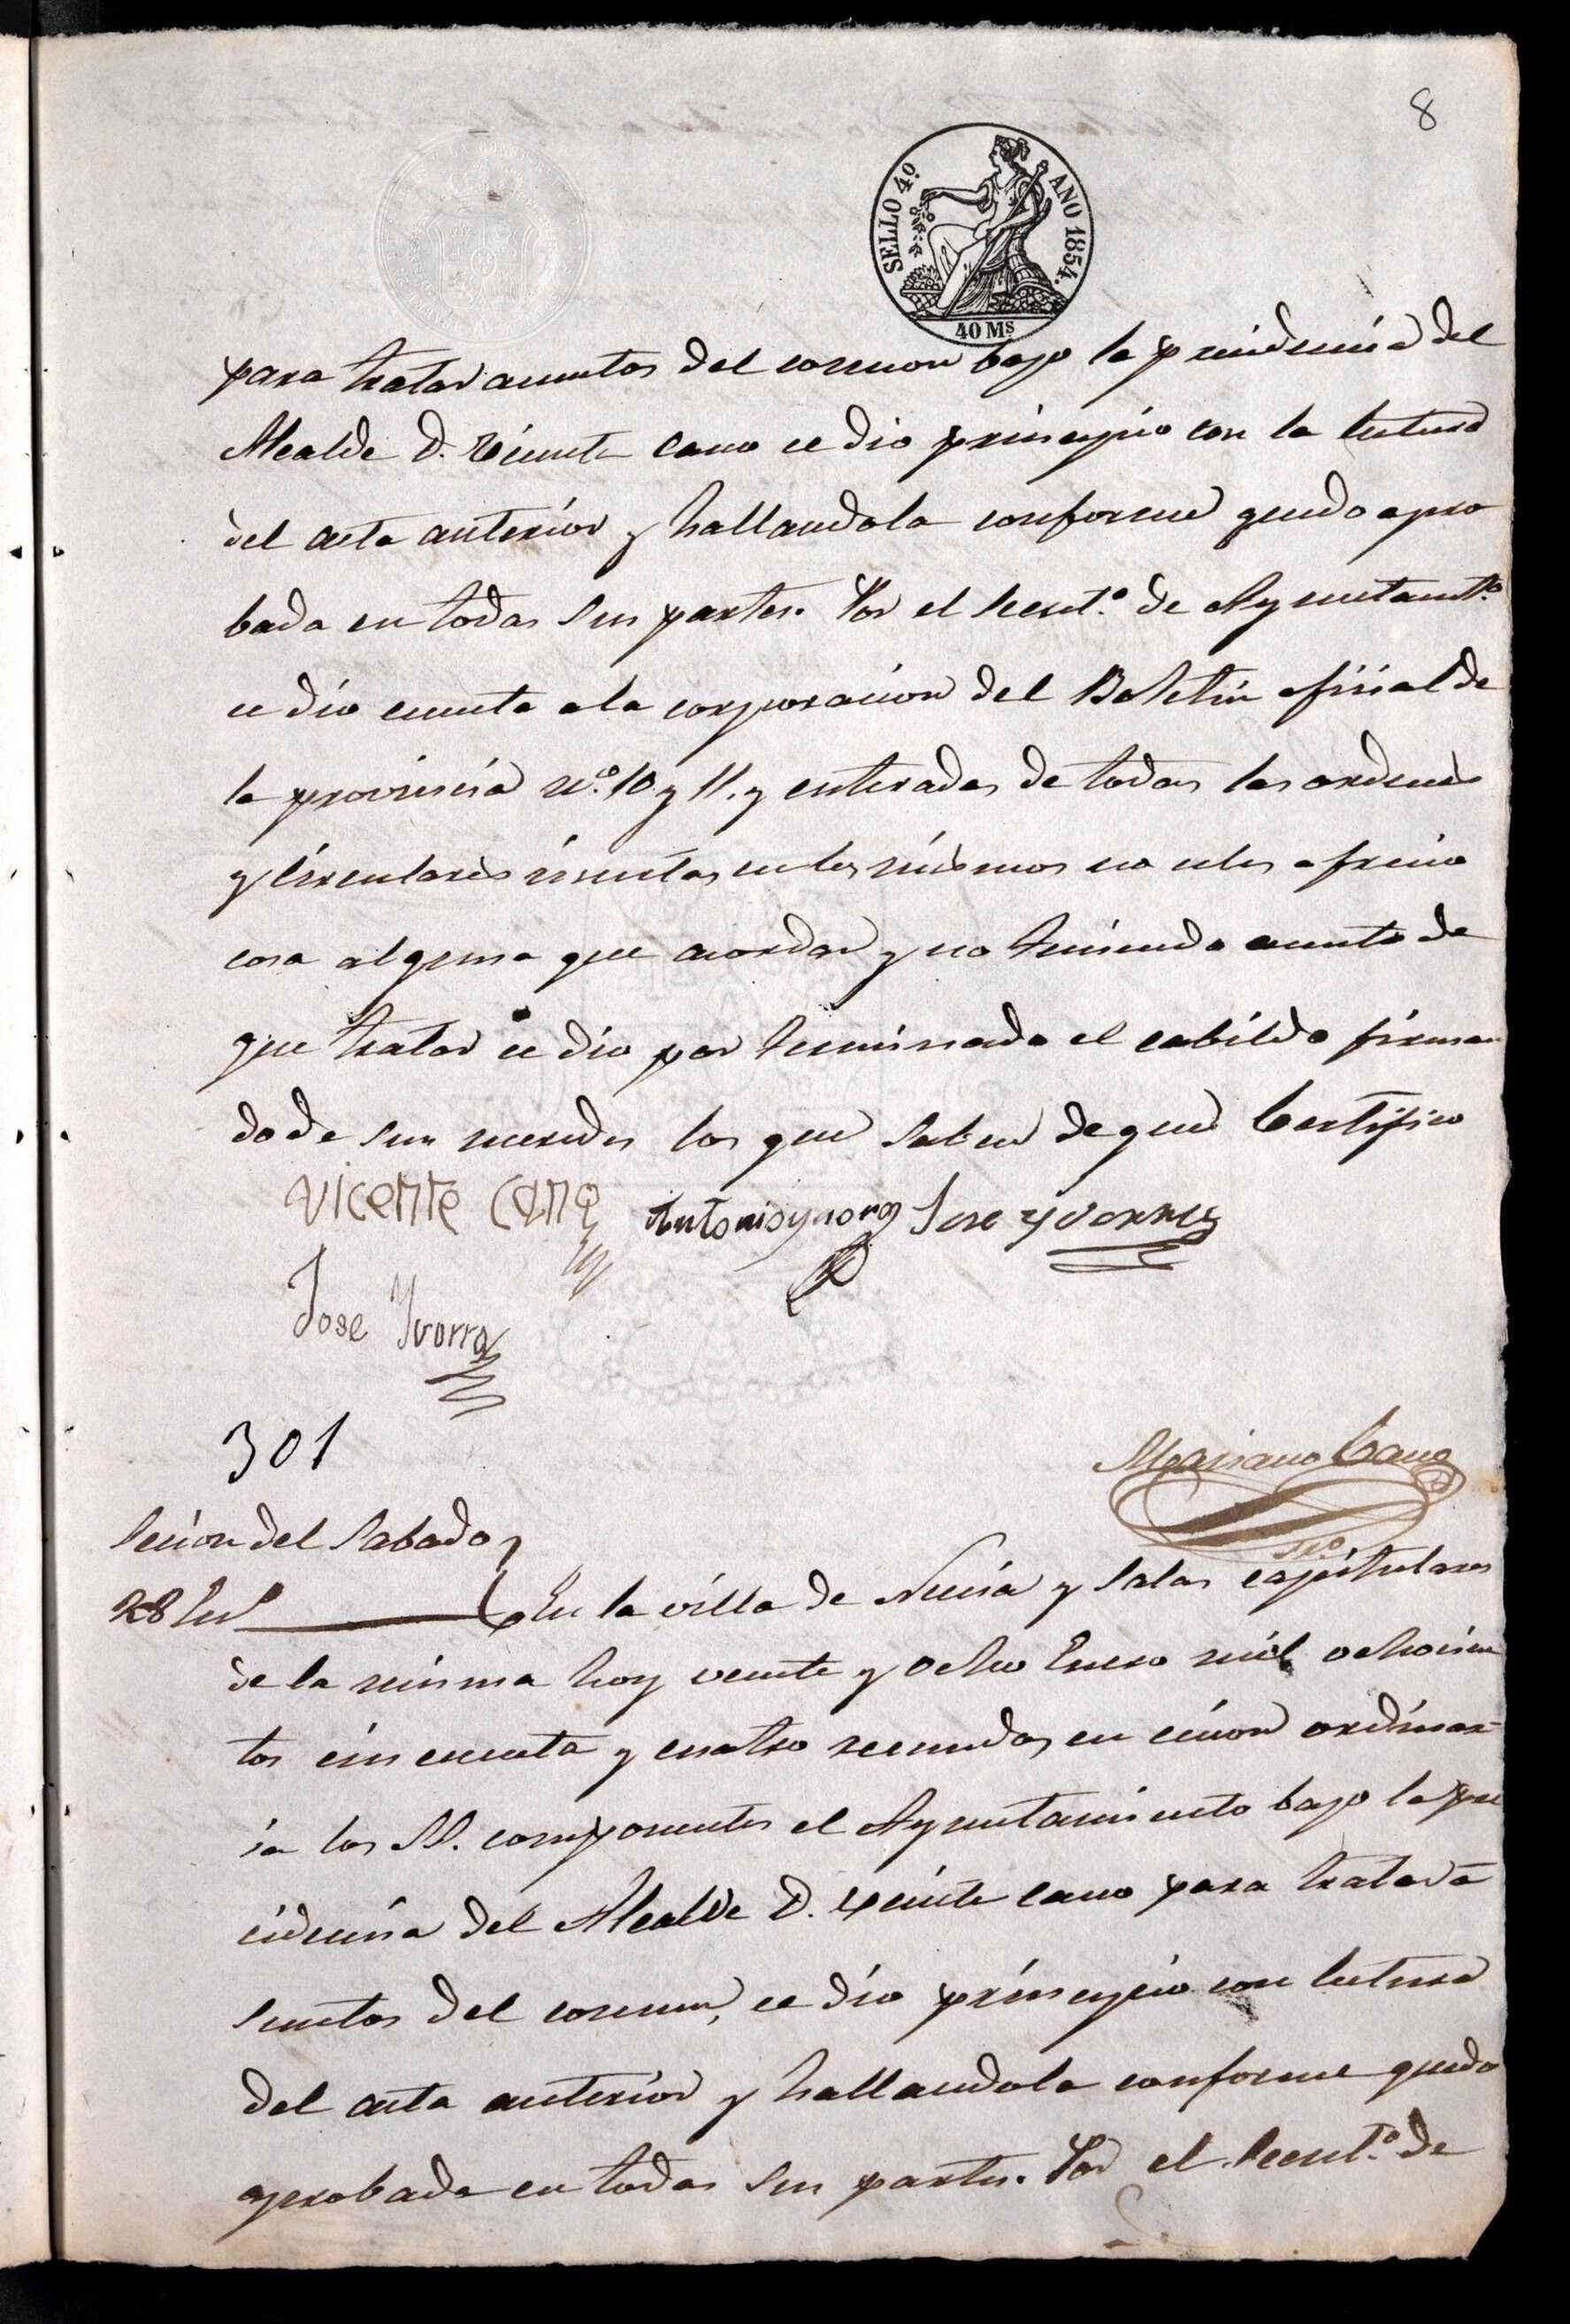 8
SELLO 4º. AÑO 1854.
40 Ms
para tratar asuntos del comun bajo la precidencia del
Alcalde D. Vicente Cano ce dio principio con la letura
del acta anterior y hallandola conforme quedo apro
bada en todas sus partes. Por el Secret.º de Ayuntamt.º
ce dio cuenta a la corporacion del Boletin oficial de
la provincia n.º 10 y 11. y enterados de todas las ordenes
y circulares incertas en los mismos no celes ofrecio
cosa alguna que acordar y no teniendo asunto de
que tratar ce dio por terminado el cabildo firman
do de sus mercedes los que saben de que Certifico
Vicente Cano Antonio ynorq Jose yvorra
Jose Yvorra
301
Mariano Cano
Srio
Secion del Sabado
28 En.º En la villa de Nucia y Salas capitulares
de la misma hoy veinte y ocho Enero mil ochocien
tos cincuenta y cuatro reunidos en cicion ordinar
ia los SS. componentes el Ayuntamiento bajo la pre
cidencia del Alcalde D. Vicinte Cano para tratar a
suntos del comun, ce dio principio con letura
del acta anterior y hallandola conforme quedo
aprobada en todas sus partes. Por el Secret.º de